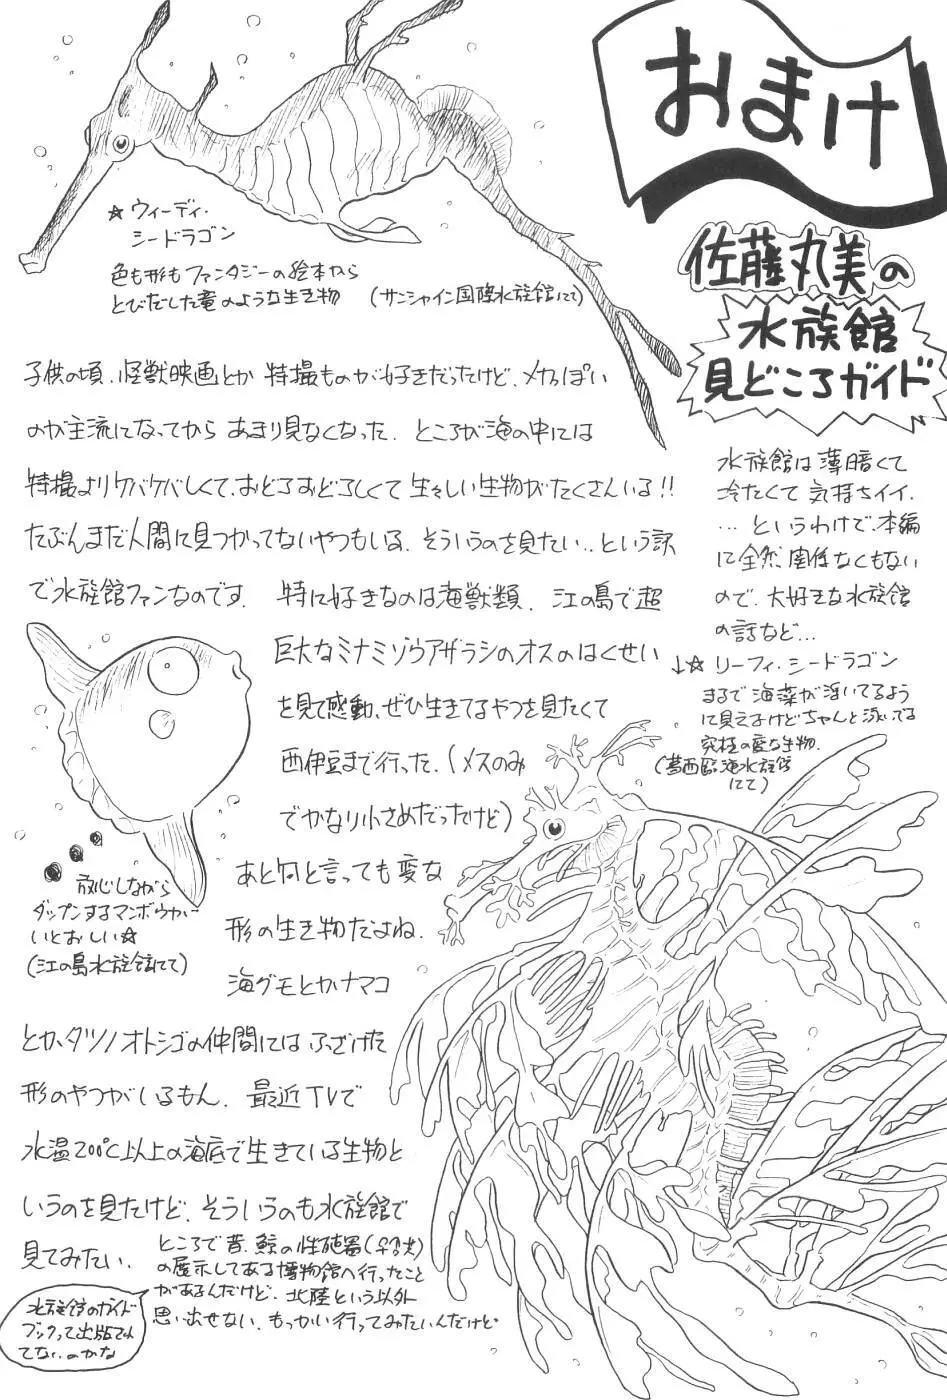 おまけ
佐藤丸美の
水族館
見どころガイド
水族館は薄暗くて
冷たくて気持ちイイ.
…というわけで、本編
に全然関係なくもない
ので、大好きな水族館
の話など…
↓☆リーフィ・シードラゴン
まるで海藻が浮いてるよう
に見えるけどちゃんと泳いでる
究極の変な生物.
(葛西臨海水族館
にて)
☆ウィーディ・
シードラゴン
色も形もファンタジーの絵本から
とびだした竜のような生き物 (サンシャイン国際水族館にて)
子供の頃、怪獣映画とか特撮ものが好きだったけど、メカっぽい
のが主流になってからあまり見なくなった. ところが海の中には
特撮よりケバケバしくて、おどろおどろしくて生々しい生物がたくさんいる!!
たぶんまだ人間に見つかってないやつもいる. そういうのを見たい..という訳
で水族館ファンなのです. 特に好きなのは海獣類. 江の島で超
巨大なミナミゾウアザラシのオスのはくせい
を見て感動、ぜひ生きてるやつを見たくて
西伊豆まで行った.(メスのみ
でかなり小さめだったけど)
あと何と言っても変な
形の生き物だよね.
海グモとかナマコ
とか、タツノオトシゴの仲間にはふざけた
形のやつがいるもん. 最近TVで
水温200℃以上の海底で生きている生物と
いうのを見たけど、そういうのも水族館で
見てみたい.
放心しながら
ダップンするマンボウがい
いとおしい☆
(江の島水族館にて)
ところで昔、鯨の性殖器(♀♂共)
の展示してある博物館へ行ったこと
があるんだけど、北陸という以外
思い出せない. もっかい行ってみたいんだけど・
水族館のガイド
ブックって出版され
てないのかな